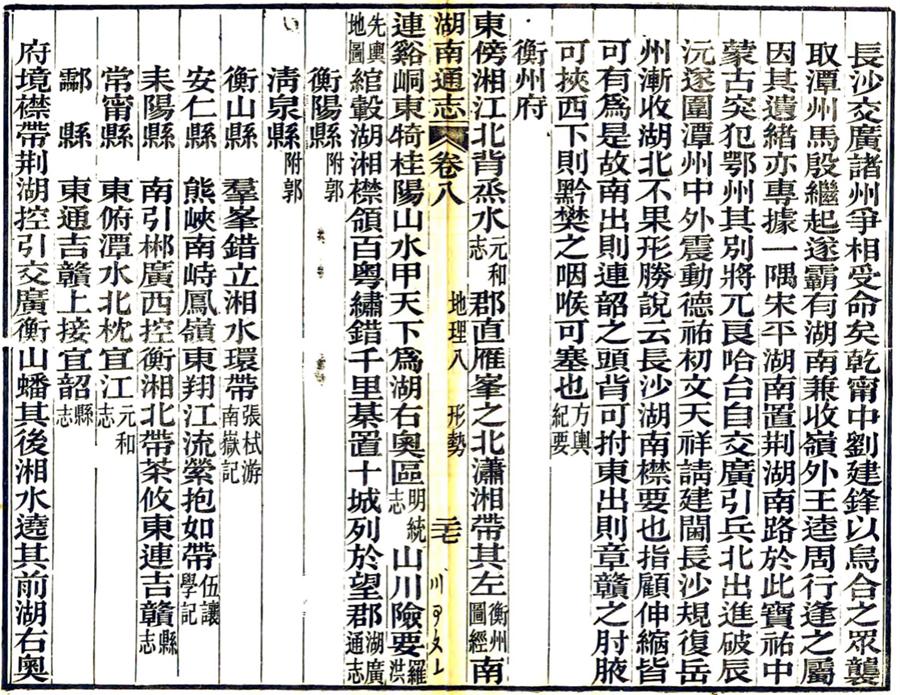 長沙交廣諸州爭相受命矣乾甯中劉建鋒以烏合之眾襲
取潭州馬殷繼起遂霸有湖南兼收嶺外王逵周行逢之屬
因其遺緒亦專據一隅宋平湖南置荆湖南路於此寶祐中
蒙古突犯鄂州其別將兀良哈台自交廣引兵北出進破辰
沅遂圍潭州中外震動德祐初文天祥請建閫長沙規復岳
州漸收湖北不果形勝說云長沙湖南襟要也指顧伸縮皆
可有為是故南出則連韶之頭背可拊東出則章贛之肘腋
可挾西下則黔樊之咽喉可塞也方輿紀要
衡州府
東傍湘江北背烝水元和志郡直雁峯之北瀟湘帶其左衡州圖經南
湖南通志 卷八 地理八 形勢 毛
連谿峒東犄桂陽山水甲天下為湖右奧區明統志山川險要羅洪
先輿地圖綰轂湖湘襟領百粵繡錯千里棊置十城列於望郡湖廣通志
衡陽縣附郭
清泉縣附郭
衡山縣 羣峯錯立湘水環帶張栻游南嶽記
安仁縣 熊峽南峙鳳嶺東翔江流縈抱如帶伍讓學記
耒陽縣 南引郴廣西控衡湘北帶茶攸東連吉贛縣志
常甯縣 東俯潭水北枕宜江元和志
酃縣 東通吉贛上接宜韶縣志
府境襟帶荆湖控引交廣衡山蟠其後湘水遶其前湖右奧